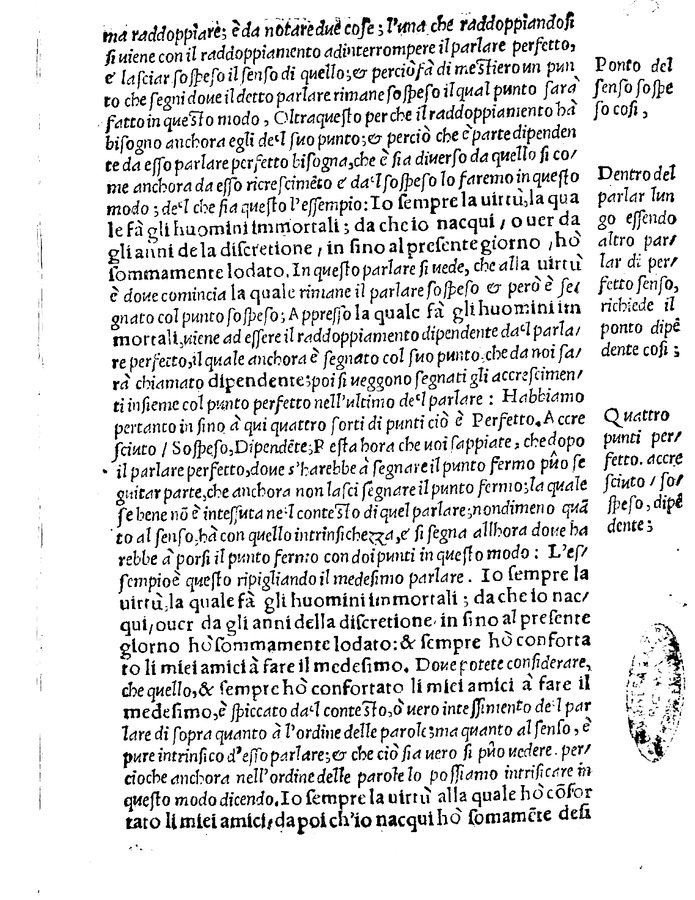 ma raddoppiare; è da notare due cose; l'una che raddoppiandosi
si uiene con il raddoppiamento ad interrompere il parlare perfetto,
e lasciar sospeso il senso di quello; & perciò fà di mestiero un pun
to che segni doue il detto parlare rimane sospeso il qual punto sarà
fatto in questo modo, Oltraquesto perche il raddoppiamento hà
bisogno anchora egli del suo punto; & perciò che è parte dipenden
te da esso parlare perfetto bisogna, che è sia diuerso da quello si co/
me anchora da esso ricrescimēto e dal sospeso lo faremo in questo
modo; del che sia questo l'essempio: Io sempre la uirtù, la qua
le fà gli huomini immortali; da che io nacqui / ouer da
gli anni de la discretione, in sino al presente giorno, hò
sommamente lodato. In questo parlare si uede, che alla uirtù
è doue comincia la quale rimane il parlare sospeso & però è se/
gnato col punto sospeso; Appresso la quale fà gli huomini im
mortali, uiene ad essere il raddoppiamento dipendente dal parla/
re perfetto, il quale anchora è segnato col suo punto. che da noi sa/
rà chiamato dipendente; poi si ueggono segnati gli accrescimen/
ti insieme col punto perfetto nell'ultimo del parlare: Habbiamo
pertanto in sino à qui quattro sorti di punti ciò è Perfetto. Accre
sciuto / Sospeso, Dipendēte; Resta hora che uoi sappiate, che dopo
il parlare perfetto, doue s'harebbe à segnare il punto fermo pūo se
guitar parte, che anchora non lasci segnare il punto fermo; la quale
se bene nō è intessuta nel contesto di quel parlare; nondimeno quā
to al senso, hà con quello intrinsichezza, e si segna allhora doue ha
rebbe à porsi il punto fermo con doi punti in questo modo: L'es/
sempio è questo ripigliando il medesimo parlare. Io sempre la
uirtù, la quale fà gli huomini immortali; da che io nac/
qui, ouer da gli anni della discretione, in sino al presente
giorno hò sommamente lodato: & sempre hò conforta
to li miei amici à fare il medesimo. Doue potete considerare,
che quello, & sempre hò confortato li miei amici à fare il
medesimo, è spiccato dal contesto, ò uero intessimento del par
lare di sopra quanto à l'ordine delle parole; ma quanto al senso, è
pure intrinsico d'esso parlare; & che ciò sia uero si pūo uedere. per/
cioche anchora nell'ordine delle parole lo possiamo intrisicare in
questo modo dicendo. Io sempre la uirtù alla quale hò cōfor
tato li miei amici, da poi ch'io nacqui hò somamēte desi
Ponto del
senso sospe
so cosi,
Dentro del
parlar lun
go essendo
altro par/
lar di per/
fetto senso,
richiede il
ponto dipē
dente cosi;
Quattro
punti per/
fetto. accre
sciuto / so/
speso, dipē
dente;